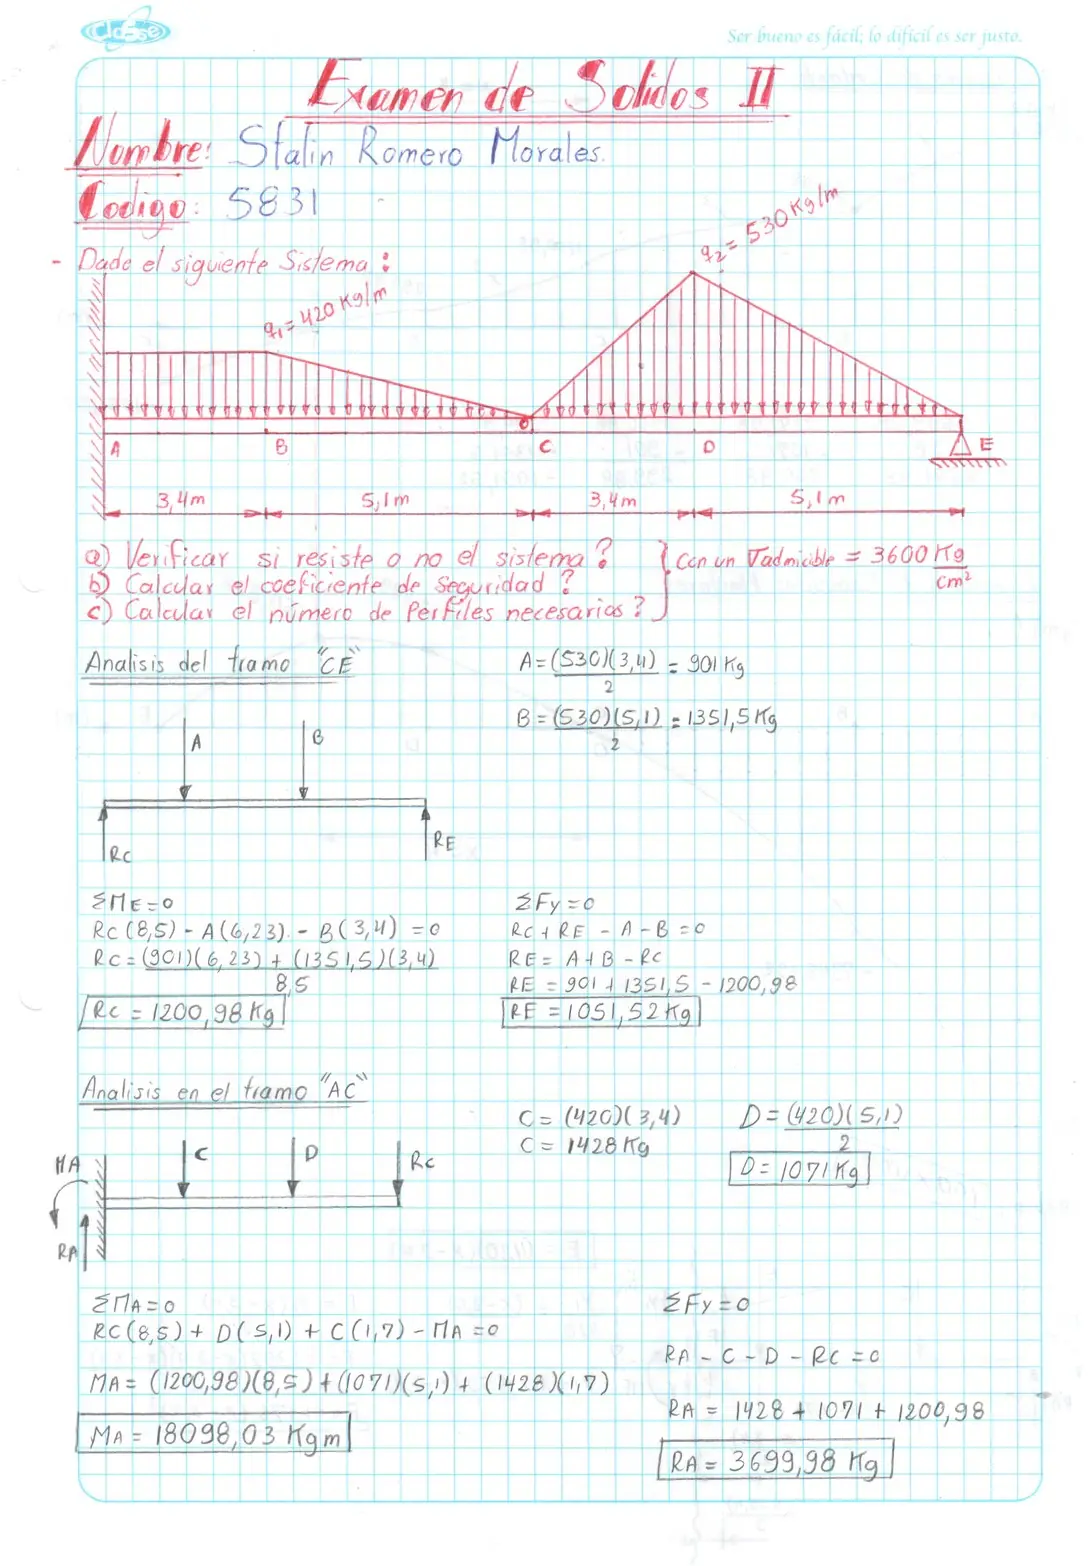 Classe
Ser bueno es fácil; lo difícil es ser justo.
Examen de Solidos II
Nombre: Stalin Romero Morales.
Codigo: 5831
- Dado el siguiente Sistema:
q₁ = 420 Kg/m
q₂ = 530 Kg/m
A B C D E
3,4m 5,1m 3,4m 5,1m
a) Verificar si resiste o no el sistema?
b) Calcular el coeficiente de seguridad?
c) Calcular el número de Perfiles necesarios?
Con un Tadmicible = 3600 Kg/cm²
Analisis del tramo "CE"
A = (530)(3,4)/2 = 901 Kg
B = (530)(5,1)/2 = 1351,5 Kg
A B
RC RE
ΣME=0
RC(8,5) - A(6,23) - B(3,4) = 0
RC = (901)(6,23) + (1351,5)(3,4)/8,5
RC = 1200,98 Kg
ΣFy=0
RC + RE - A - B = 0
RE = A + B - RC
RE = 901 + 1351,5 - 1200,98
RE = 1051,52 Kg
Analisis en el tramo "AC"
C = (420)(3,4)
C = 1428 Kg
D = (420)(5,1)/2
D = 1071 Kg
MA C D RC
RA
ΣMA=0
RC(8,5) + D(5,1) + C(1,7) - MA = 0
MA = (1200,98)(8,5) + (1071)(5,1) + (1428)(1,7)
MA = 18098,03 Kgm
ΣFy=0
RA - C - D - RC = 0
RA = 1428 + 1071 + 1200,98
RA = 3699,98 Kg